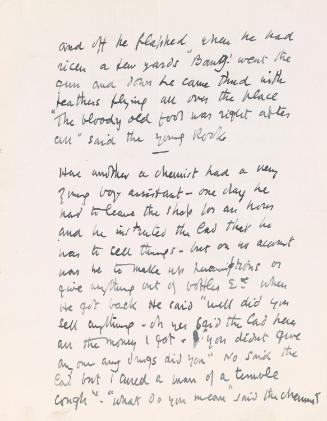 and off he flapped when he had
risen a few yards "Bang" went the
gun and down he came thud with
feathers flying all over the place
"The bloody old fool was right after
all" said the young Rook
Here another a chemist had a very
young boy assistant - one day he
had to leave the shop for an hour
and he instructed the lad that he
was to sell things - but on no account
was he to make up prescriptions or
give anything out of bottles Etc when
He got back He said "well did you
sell anything - oh yes said the lad here
all the money I got - "you didn't give
anyone any drugs did you" No said the
Lad but I cured a man of a "terrible
cough" - "what do you mean" said the chemist